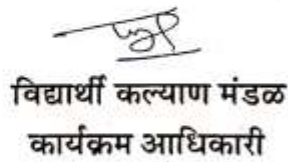 विद्यार्थी कल्याण मंडळ
कार्यक्रम आधिकारी